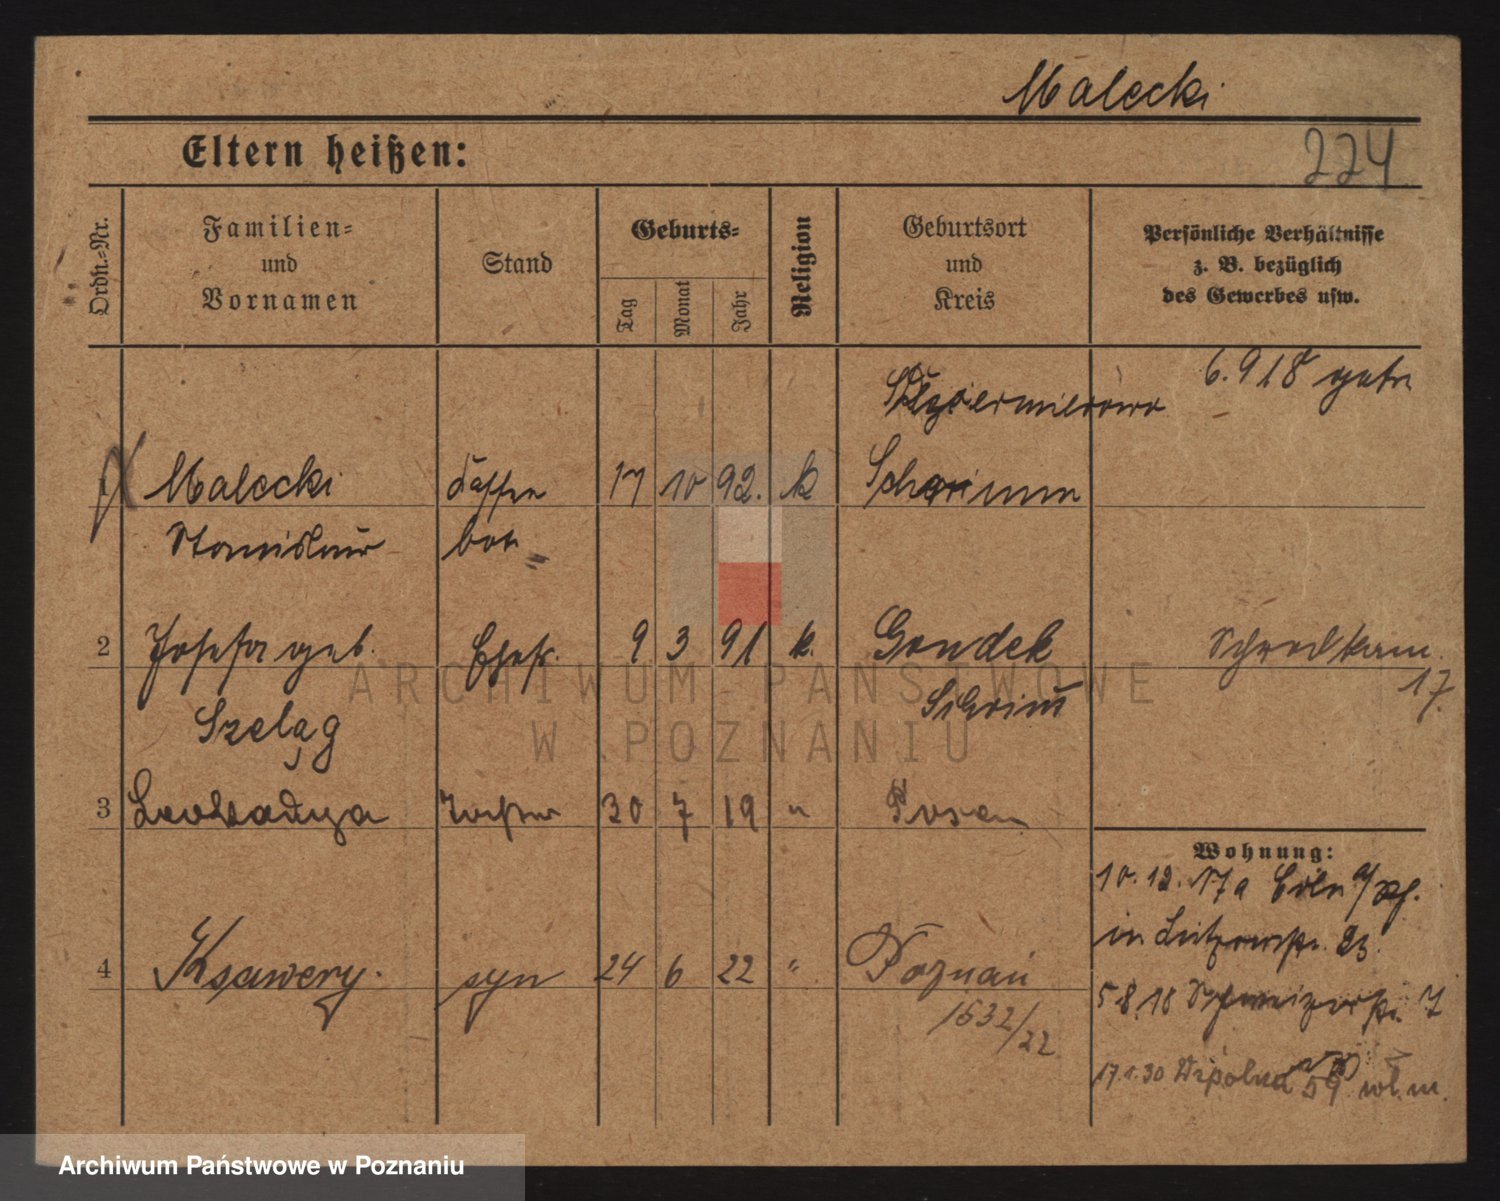 Malecki
Eltern heißen:
224
Ordn.-Nr.
Familien-
und
Vornamen
Stand
Geburts-
Tag
Monat
Jahr
Religion
Geburtsort
und
Kreis
Persönliche Verhältnisse
z. B. bezüglich
des Gewerbes usw.
6. 918
1 Malecki 17 10 92. k Schrimm
Stanislaus
2 Josefa geb. Ehefr. 9 3 91 k. Gondek
Szeląg Schrimm
17.
3 Leokadya Tochter 30 7 19 " Posen
Wohnung:
10. 12. 17 a Cöln a/Rh.
in Lützowstr. 23.
4 Ksawery. syn 24 6 22 " Poznań
5 8. 18
1632/22
17.1.30 Wspólna 59 wł. m.
ARCHIWUM PAŃSTWOWE
W POZNANIU
Archiwum Państwowe w Poznaniu